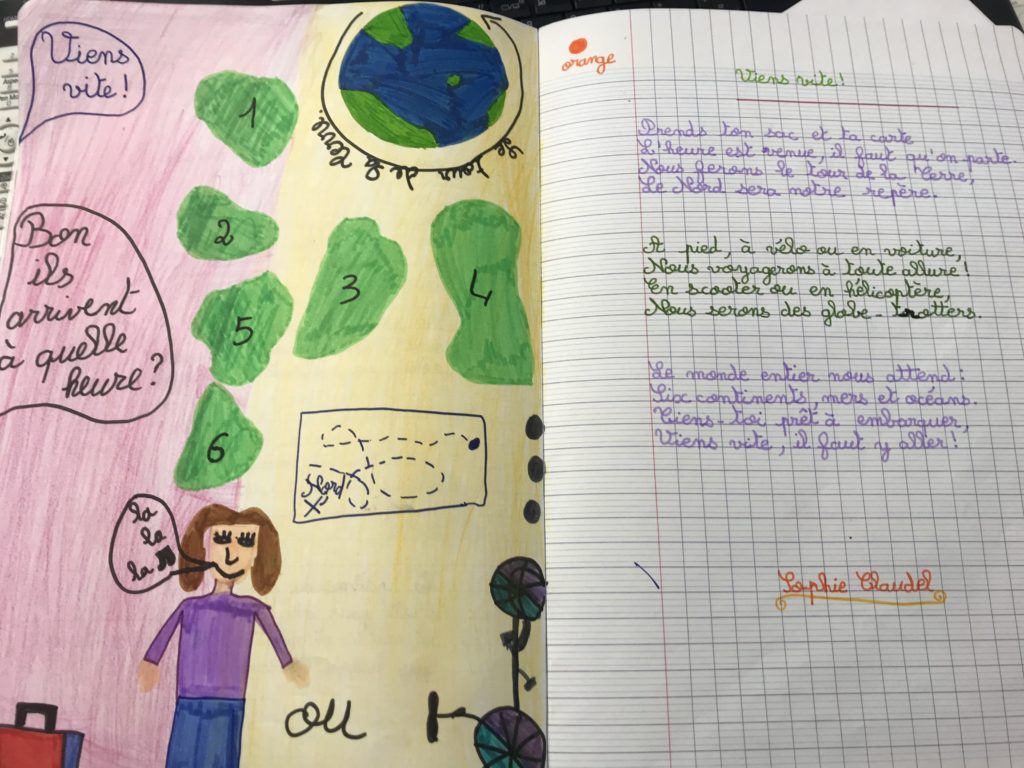 Viens
vite!
le tour de la Terre.
1
2
3
4
5
6
Bon
ils
arrivent
à quelle
heure?
Nord
X
la
la
la
ou
orange
Viens vite!
Prends ton sac et ta carte
L'heure est venue, il faut qu'on parte.
Nous ferons le tour de la Terre,
Le Nord sera notre repère.
A pied, à vélo ou en voiture,
Nous voyagerons à toute allure!
En scooter ou en hélicoptère,
Nous serons des globe-trotters.
Le monde entier nous attend:
Six continents, mers et océans.
Tiens-toi prêt à embarquer,
Viens vite, il faut y aller!
Sophie Claudel